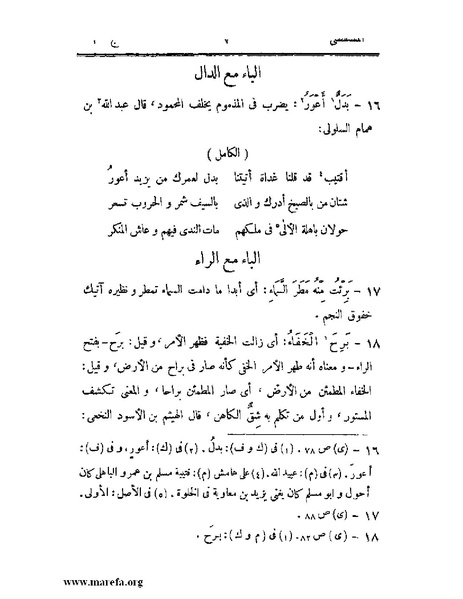 المستقصى ٧ ج ١
الباء مع الدال
١٦ - بَدَلٌ أَعْوَرُ: يضرب فى المذموم يخلف المحمود، قال عبد الله بن
همام السلولى:
(الكامل)
أقتيب قد قلنا غداة أتيتنا بدل لعمرك من يزيد أعورُ
شتان من بالصنج أدرك و الذى بالسيف شمر و الحروب تسعر
حولان باهلة الألىٰ فى ملكهم مات الندى فيهم و عاش المنكر
الباء مع الراء
١٧ - بَرِئْتُ مِنْهُ مَطَرَ السَّمَاءِ: أى أبدا ما دامت السماء تمطر و نظيره آتيك
خفوق النجم.
١٨ - بَرِحَ الْخَفَاءُ: أى زالت الخفية فظهر الأمر، و قيل: برَح - بفتح
الراء - و معناه أنه ظهر الأمر الخفى كأنه صار فى براح من الأرض، و قيل:
الخفاء المطمئن من الأرض، أى صار المطمئن براحا، و المعنى تكشف
المستور، و أول من تكلم به شِقٌّ الكاهن، قال الهيثم بن الأسود النخعى:
١٦ - (ى) ص ٧٨. (١) فى (ك و ف): بدلُ. (٢) فى (ك): أعورِ، و فى (ف):
أعورَ. (٣) فى (م): عبيد الله. (٤) على هامش (م): قتيبة مسلم بن عمرو الباهلى كان
أحول و ابو مسلم كان يغنى يزيد بن معاوية فى الخلوة. (٥) فى الأصل: الأولى.
١٧ - (ى) ص ٨٨.
١٨ - (ى) ص ٨٢. (١) فى (م و ك): برَح.
www.marefa.org